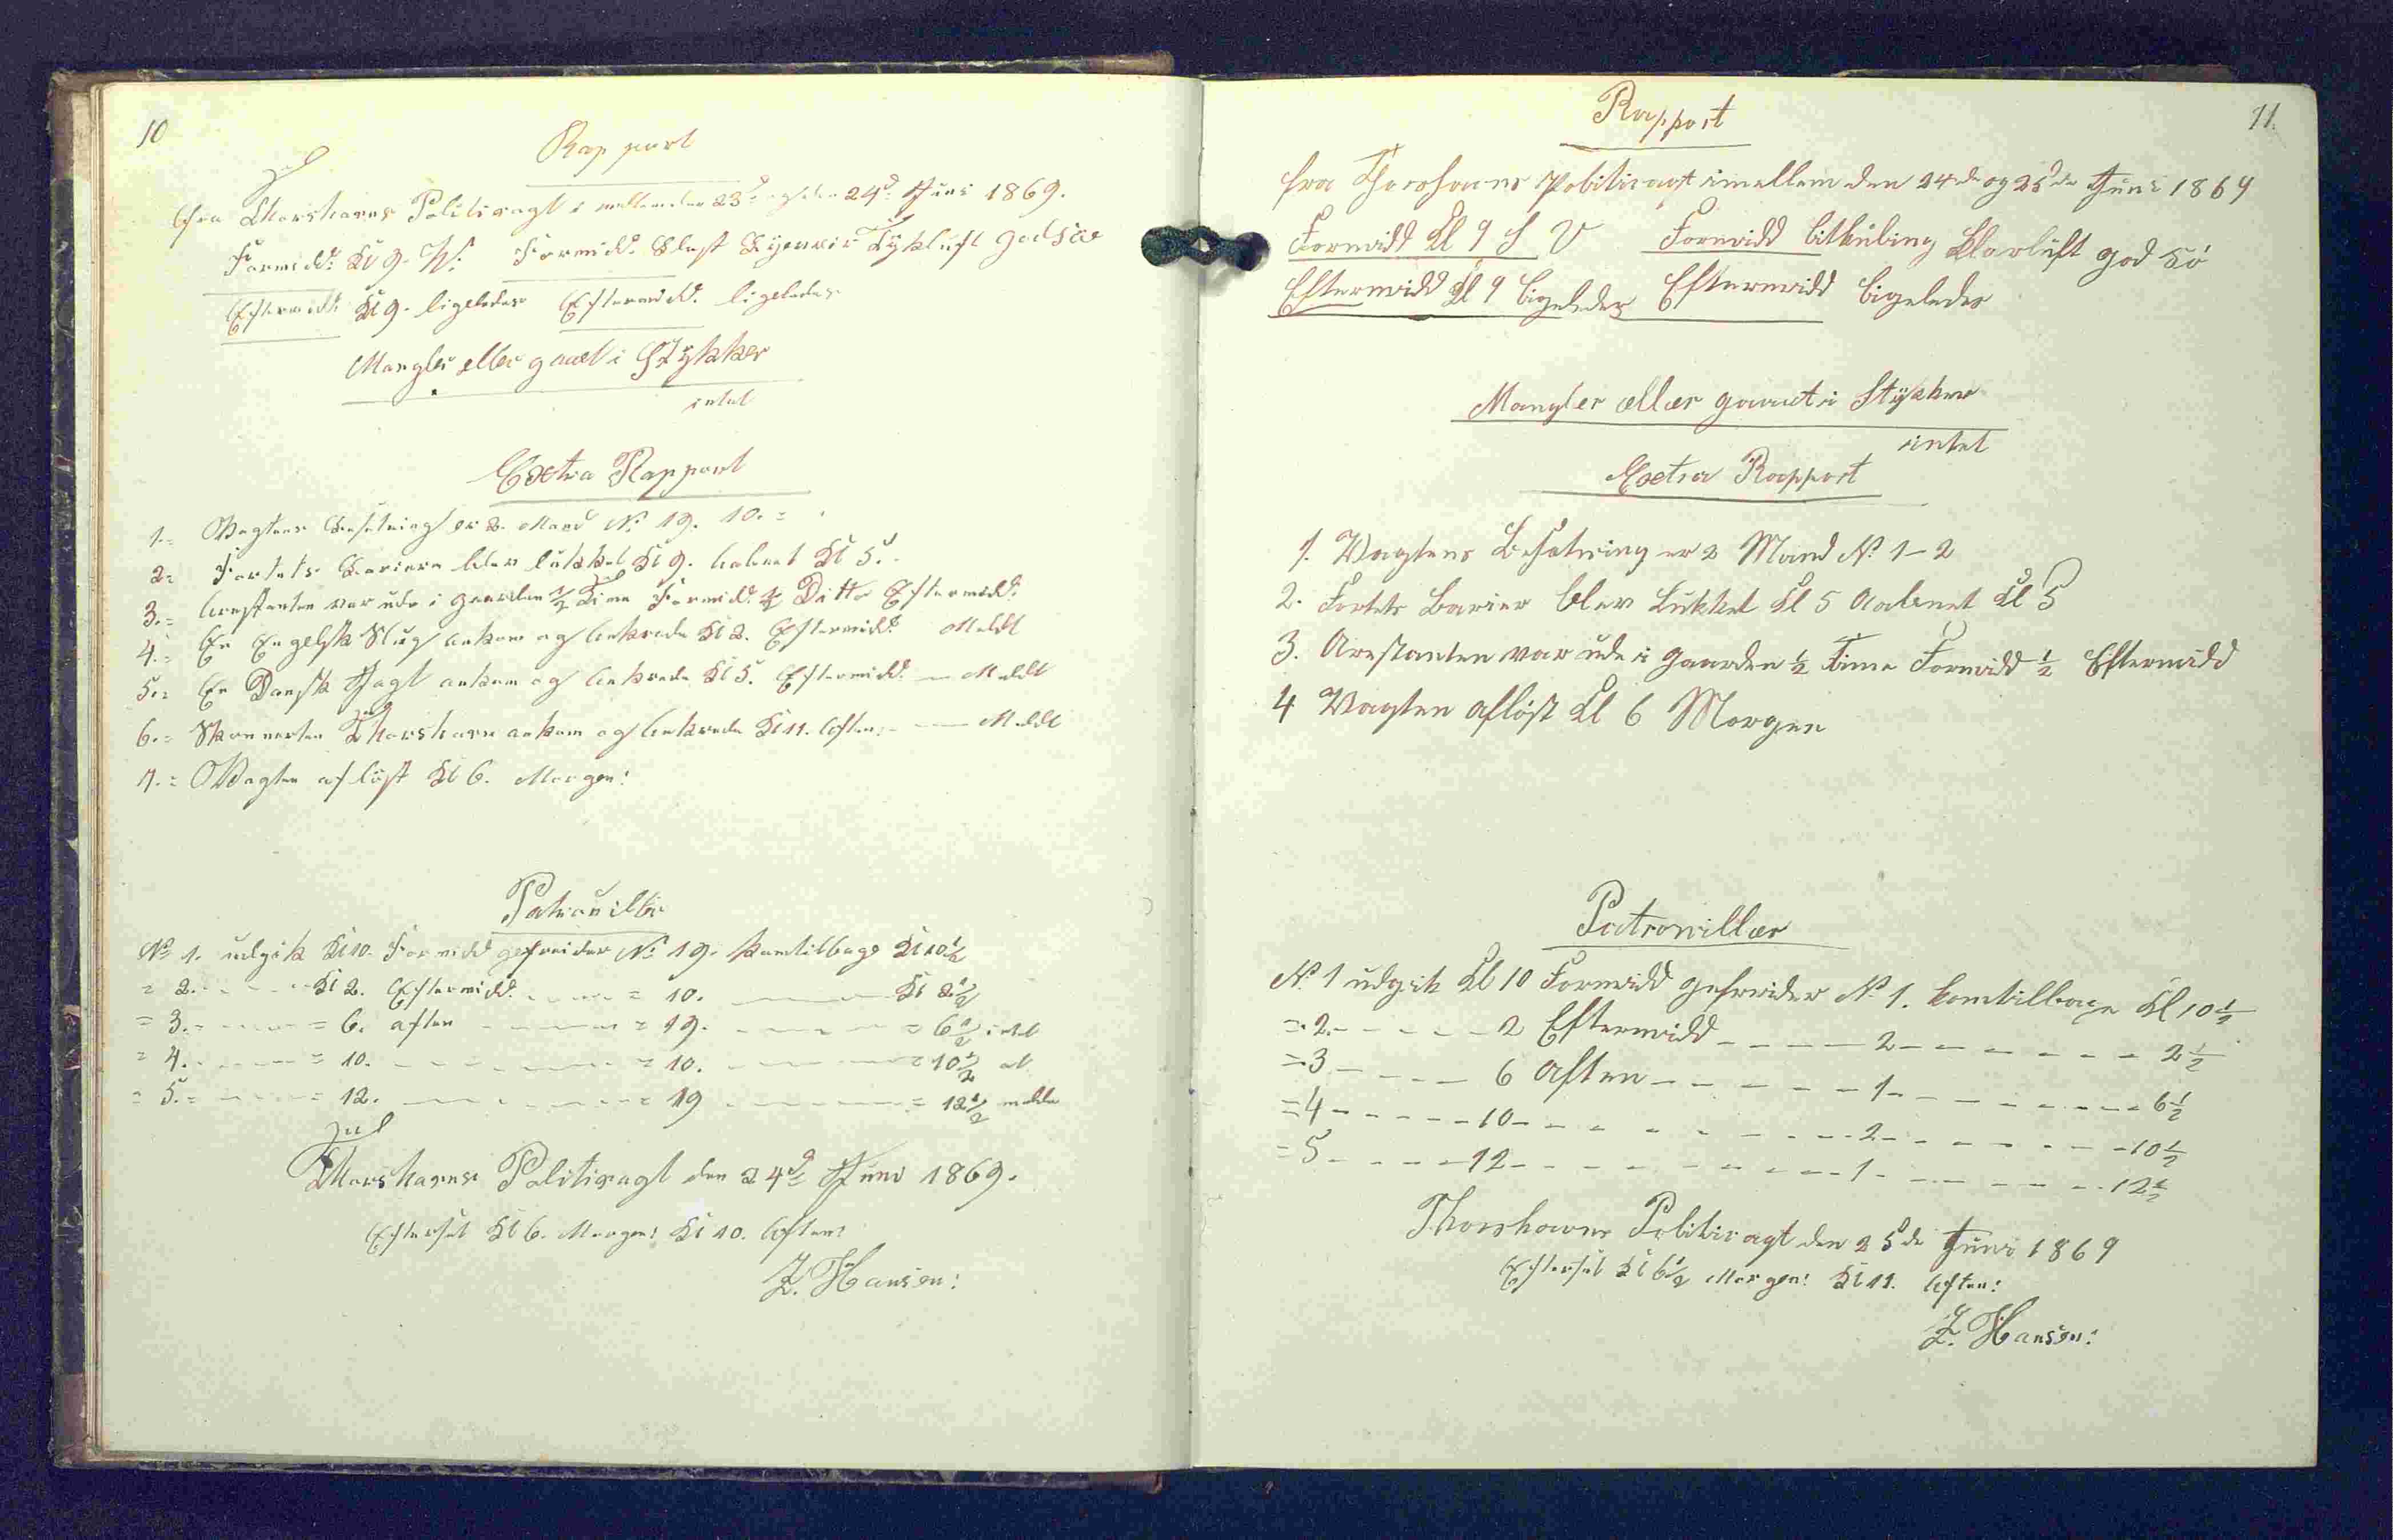 10
Rapport
fra Thorshavns Politivagt i mellem den 23d og den 24d Juni 1869.
Formidd: Kl 9. W: Formidd: Blæst Tykluft god Søe
Eftermidd: Kl 9. ligeledes Eftermidd: ligeledes
Mangler eller gaaet i Stykker
intet
Extra Rapport
1.= Vagtens Besætning er 2. Mand No 19. 10. =
2= Fortets Bariere blev lukket Kl 9. aabnet Kl 5.
3.= Arestanten var ude i gaarden 1/2 Time Formidd: 1/2 Ditto Eftermidd:
4.= En Engelsk Slup ankom og ankrede Kl 2. Eftermidd: Meldt
5.= En Dansk Jagt ankom og ankrede Kl 5. Eftermidd: — Meldt
6.= Skonnerten Thorshavn ankom og ankrede Kl 11. Aften: — Meldt
7.= Vagten afløst Kl 6. Morgen:
Patrouiller
No 1. udgik Kl 10. Formidd gefreider No 19. kom tilbage Kl 10 1/2
= 2. - - - Kl 2. Eftermidd. - - - = 10. - - - Kl 2 1/2
= 3. - - - = 6. aften - - - = 19. - - - = 6 1/2 intet
= 4. - - - = 10. - - - = 10. - - - = 10 1/2 at
= 5. = - - - = 12. - - - = 19 - - - = 12 1/2 melde
Thorshavns Politivagt den 24d Juni 1869.
Efterset Kl 6. Morgen: Kl 10. Aften:
Z. Hansen:
11.
Rapport
fra Thorshavns Politivagt imellem den 24de og 25de Juni 1869
Formidd Kl 9 S V Formidd Litkuling Klarluft god Sö
Eftermidd Kl 9 ligeledes Eftermidd ligeledes
Mangler eller gaaet i Stykker
intet
Extra Rapport
1. Vagtens Besætning er 2 Mand No 1-2
2. Fortets Barier blev Lukket Kl 5 Aabnet Kl 5
3. Arestanten var ude i gaarden 1/2 Time Formidd 1/2 Eftermidd
4 Vagten afløst Kl 6 Morgen
Patrowiller
No 1 udgik Kl 10 Formidd gefreider No 1. kom tilbage Kl 10 1/2
= 2. - - - - 2 Eftermidd - - - - 2 - - - - - 2 1/2
= 3 - - - - 6 Aften - - - - - 1 - - - - - 6 1/2
= 4 - - - - 10 - - - - - - 2 - - - - - 10 1/2
= 5 - - - - 12 - - - - - - 1 - - - - - 12 1/2
Thorshavns Politivagt den 25de Juni 1869
Efterset Kl 6 1/2 Morgen: Kl 11. Aften:
Z. Hansen: